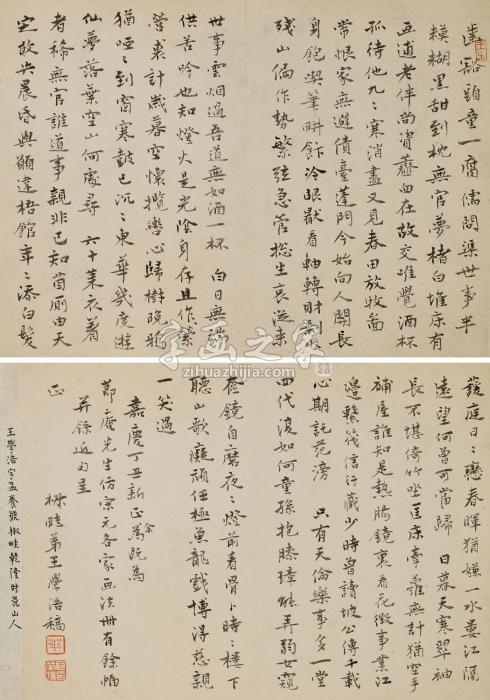 齒豁頭童一腐儒問渠世事半
模糊黑甜到枕無官夢楮白堆床有
老伴尚資薑
孤待他九々寒消盡又見春田放牧
帶恨家無避債臺蓬門今始向人開長
身飽喫筆耕飰冷眼厭看軸轉財
殘山偏作勢繁弦急管總生哀從來
世事雲烟過吾道無如酒一杯 白日無
供苦吟也知燈火是光陰身存且作
營裘計歲暮空懷攬轡心歸樹晚鴉
猶啞々到窗寒鼓已沉々東華幾度遊
仙夢落葉空山何處尋 六十萊衣著
者稀無官誰道事親非已知菌廁由天
定敢共晨昏與願違梧館年々添白髮
萱庭日々戀春暉猶嫌一水婁江隔
遠望何曾可當歸 日暮天寒翠袖
長不堪倚竹坐匡床牽蘿無計猶空手
補屋誰知是熱腸鏡裏看花徵事業江
邊
信行藏少時曾讀坡公傳千載
心期託范滂 只有天倫樂事多一堂
四代復如何童孫抱膝璋能弄弱女窺
窗鏡自磨夜々燈前看骨卜時々樓下
聽山歌癡頑任極魚龍戲博得慈親
一笑過
嘉慶丁丑新正余為既為
節庵先生仿宋元各家画法冊有餘帋
并錄近句呈
正
椒畦弟王學浩稿
王學浩字孟養號椒畦乾隆時崑山人
字画之家
zihuazhijia.com